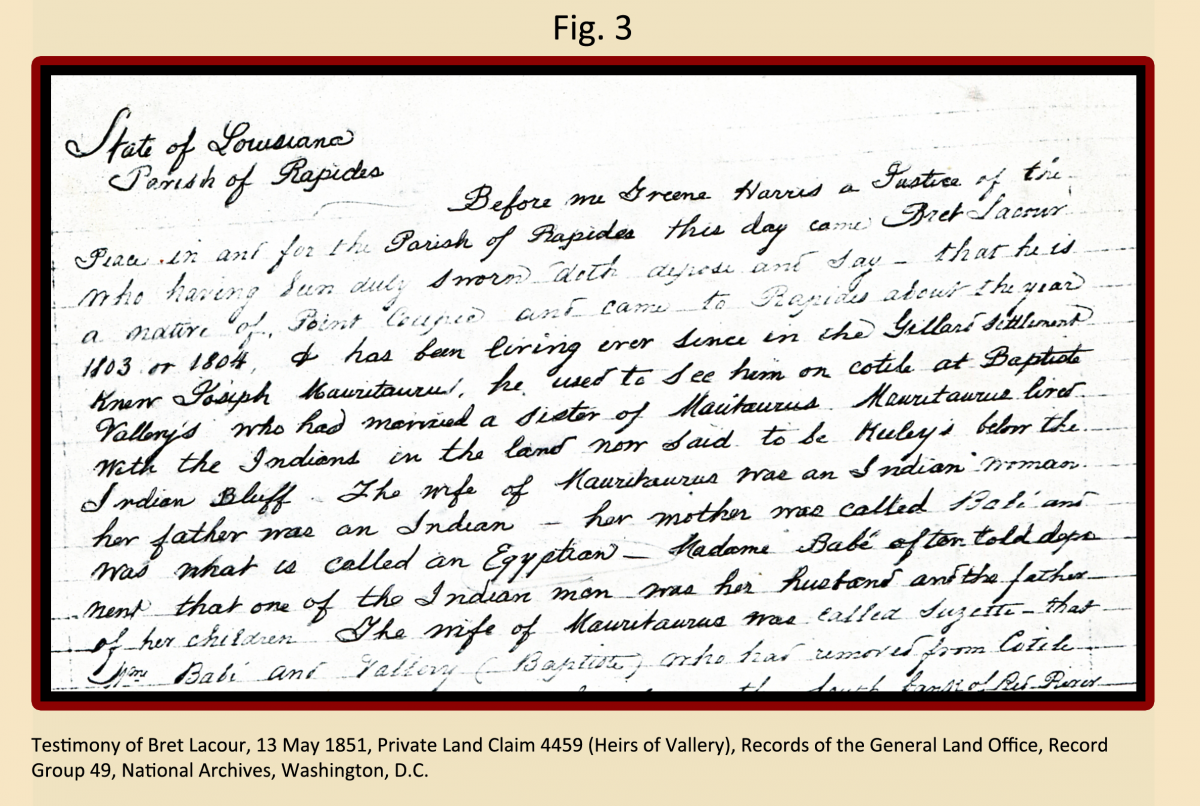 Fig. 3
State of Louisiana
Parish of Rapides
Before me Greene Harris a Justice of the
Peace in and for the Parish of Rapides this day came Bret Lacour
who having been duly sworn doth depose and say – that he is
a native of Point Coupee and came to Rapides about the year
1803 or 1804, & has been living ever since in the Gillard Settlement
Knew Joseph Mauritaurus, he used to see him on cotile at Baptiste
Vallery's who had married a sister of Mauitaurus Mauritaurus lived
with the Indians in the land now said to be Huley's below the
Indian Bluff – The wife of Mauritaurus was an Indian woman
her father was an Indian – her mother was called Babé and
was what is called an Egyptian – Madame Babé often told depo
nent that one of the Indian men was her husband and the father
of her children The wife of Mauritaurus was called Suzette – that
Mm Babé and Vallery (Baptiste) who had removed from Cotile
the South bank of Red River
Testimony of Bret Lacour, 13 May 1851, Private Land Claim 4459 (Heirs of Vallery), Records of the General Land Office, Record
Group 49, National Archives, Washington, D.C.